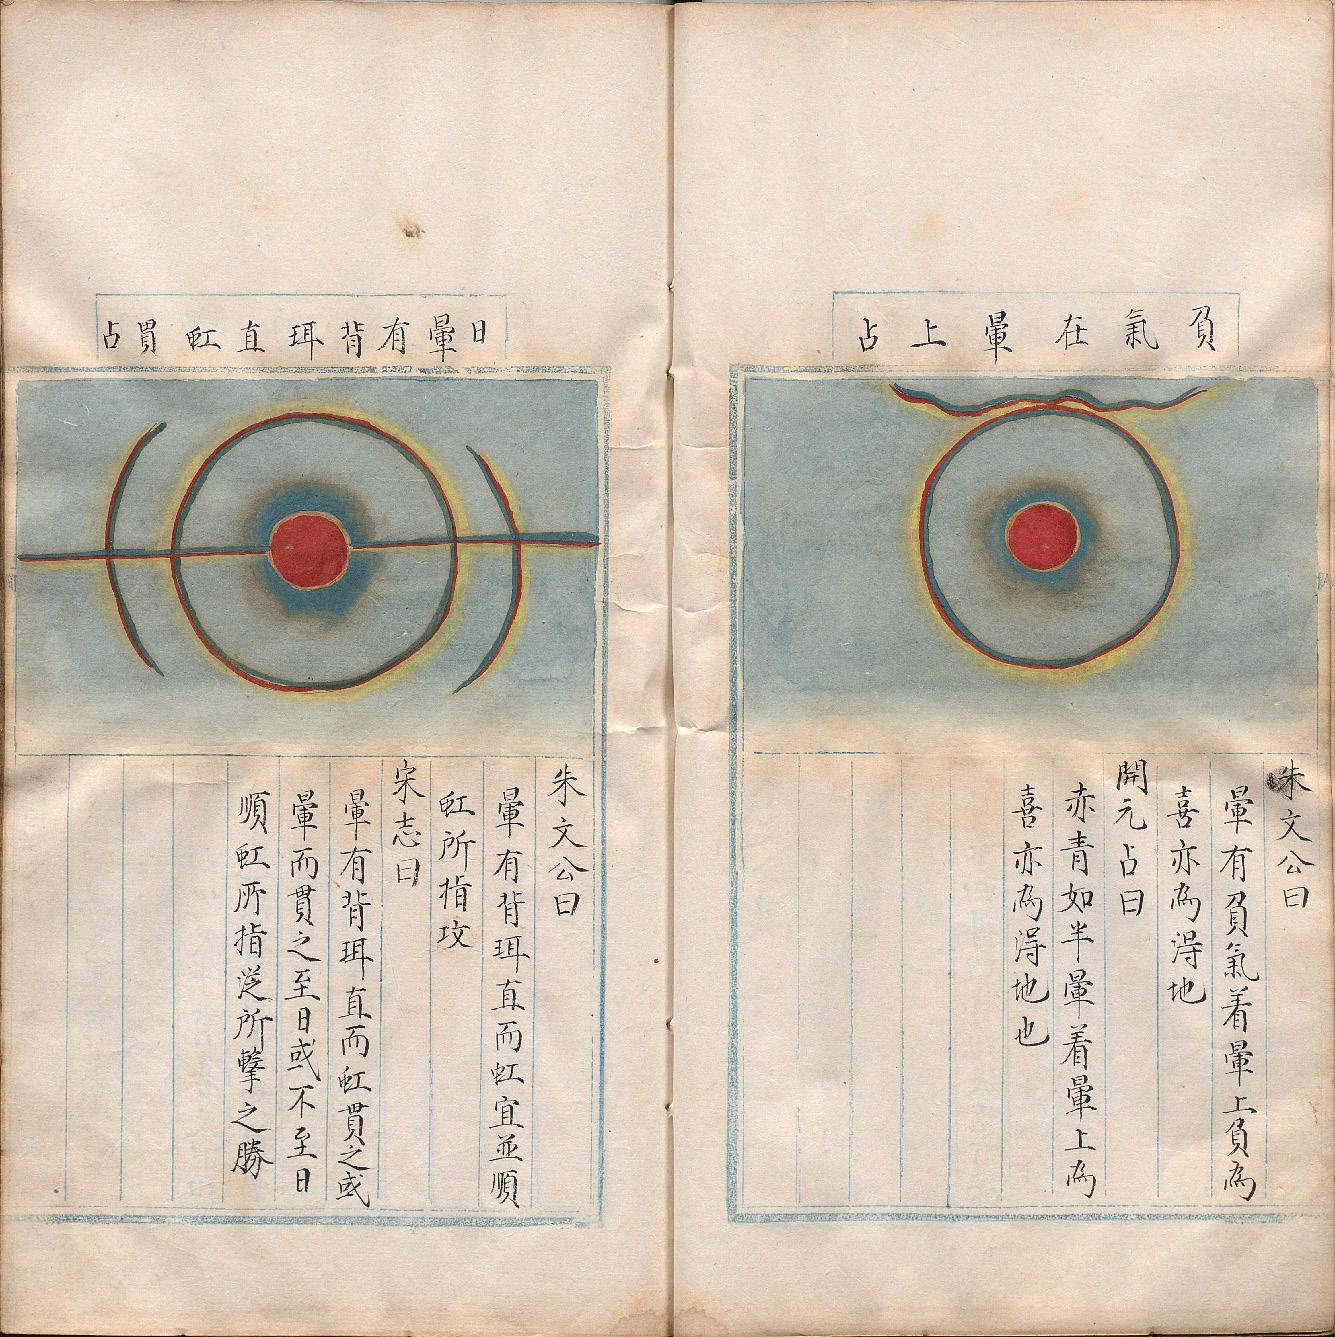 負氣在暈上占
朱文公曰
暈有負氣着暈上負為
喜亦為得地
開元占曰
赤青如半暈着暈上為
喜亦為得地也
日暈有背珥直虹貫占
朱文公曰
暈有背珥直而虹宜並順
虹所指攻
宋志曰
暈有背珥直而虹貫之或
暈而貫之至日或不至日
順虹所指從所擊之勝